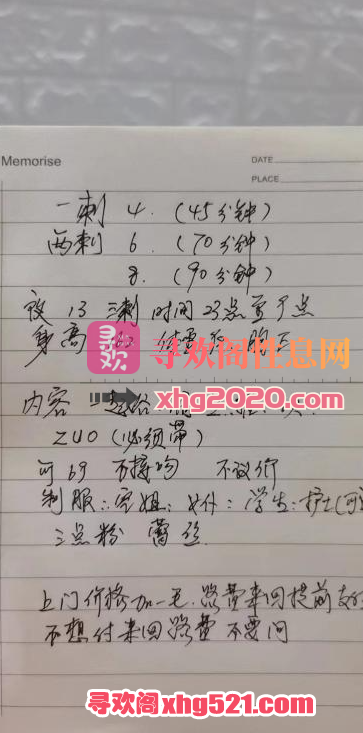 Memorise
DATE
PLACE
一刺 4. (45分钟)
两刺 6. (70分钟)
8. (90分钟)
13 三刺 时间 23点至7点
身高
寻欢
寻欢阁性息网
xhg2020.com
内容
ZUO (必须带)
可69 不接吻 不议价
制服: 空姐: 女仆: 学生: 护士
三点粉 蕾丝
上门价格加一毛. 路费来回提前
不想付来回路费 不要问
寻欢阁xhg521.com